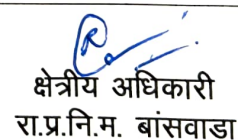 क्षेत्रीय अधिकारी
रा.प्र.नि.म. बांसवाडा